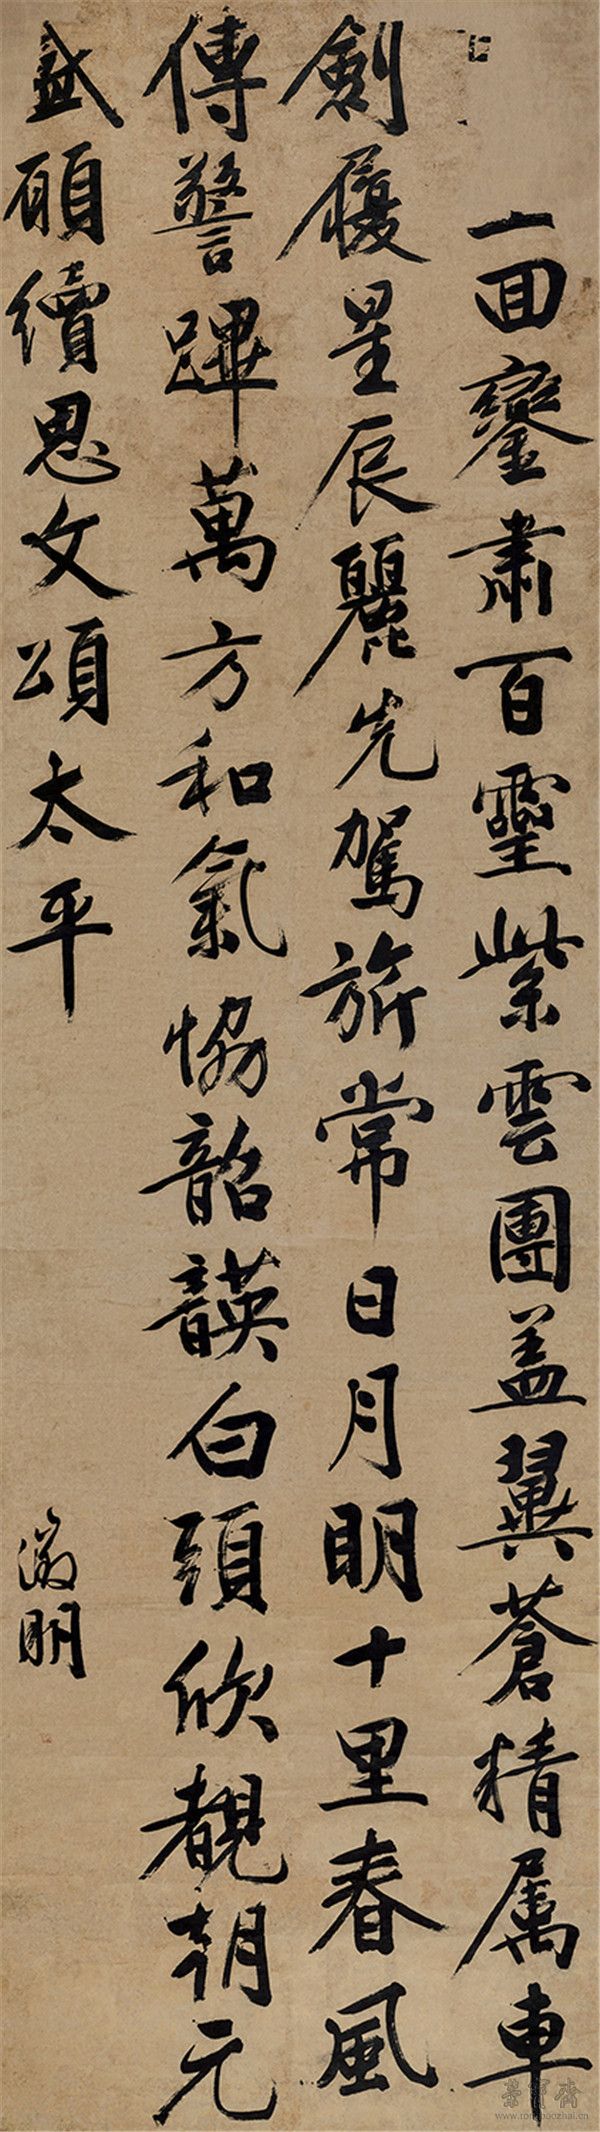 一回鑾肅百靈紫雲團蓋翼蒼精属車
劍履星辰麗先駕旂常日月明十里春風
傳警蹕萬方和氣協韶韺白頭欣覩朝元
盛願續思文頌太平
徵明
榮寶齋
www.rongbaozhai.cn